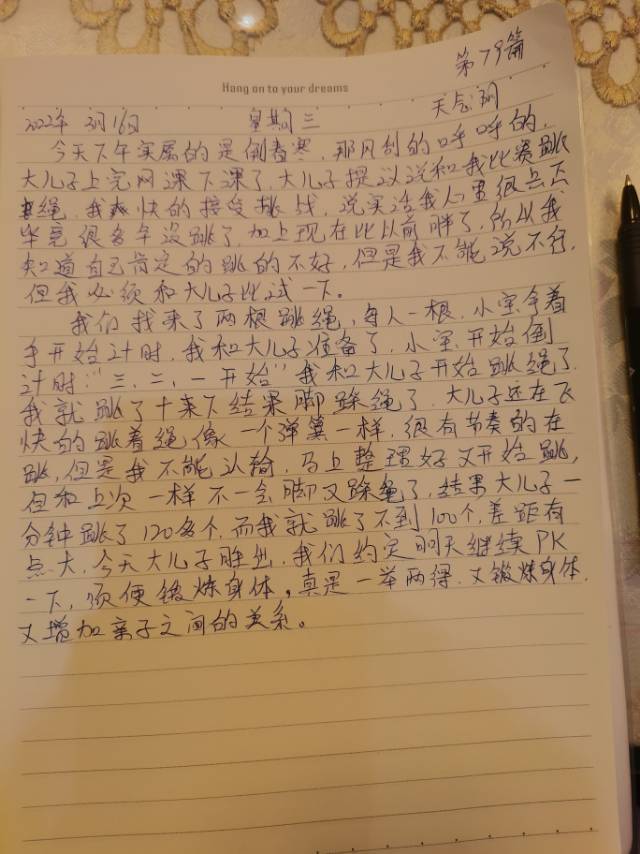 第79篇
Hang on to your dreams
2022年 3月16日 星期三 天气阴
今天下午实属的是倒春寒,那风刮的呼呼的,
大儿子上完网课下课了,大儿子提议说和我比赛跳
绳,我爽快的接受挑战,说实话我心里很忐忑
毕竟很多年没跳了,加上现在比以前胖了,所以我
知道自己肯定的跳的不好,但是我不能说不行,
但我必须和大儿子比试一下。
我们找来了两根跳绳,每人一根,小宝争着
手开始计时,我和大儿子准备了,小宝开始倒
计时:“三、二、一开始”我和大儿子开始跳绳了.
我就跳了十来下结果脚踩绳了,大儿子还在飞
快的跳着绳像一个弹簧一样,很有节奏的在
跳,但是我不能认输,马上整理好又开始跳,
但和上次一样不一会脚又踩绳了,结果大儿子一
分钟跳了120多个,而我就跳了不到100个,差距有
点大,今天大儿子胜出,我们约定明天继续PK
一下,顺便锻炼身体,真是一举两得,又锻炼身体.
又增加亲子之间的关系。